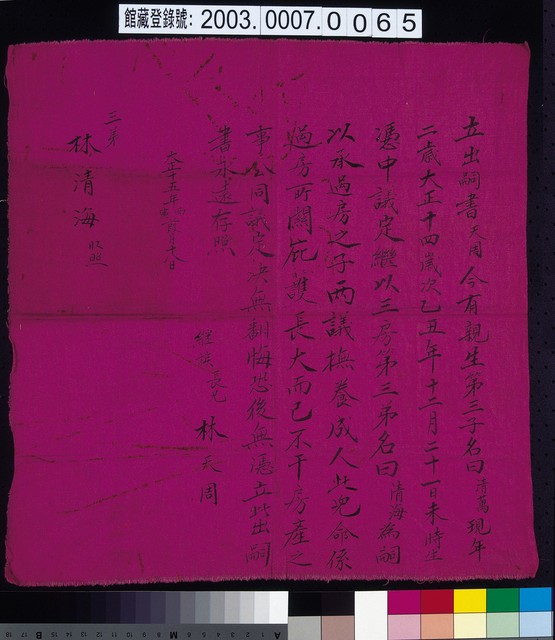 館藏登錄號: 2003.0007.0065
立出嗣書天周今有親生第三子名曰清萬現年
二歲大正十四歲次乙丑年十二月二十一日未時生
憑中議定繼以三房第三弟名曰清海為嗣
以承過房之子兩議撫養成人此兒命係
過房所關庇雙長大而已不干房產之
事公同議定决無翻悔恐後無憑立此出嗣
書永遠存照
大正十五年 月十八日
長兄 林天周
三弟
林清海 收照